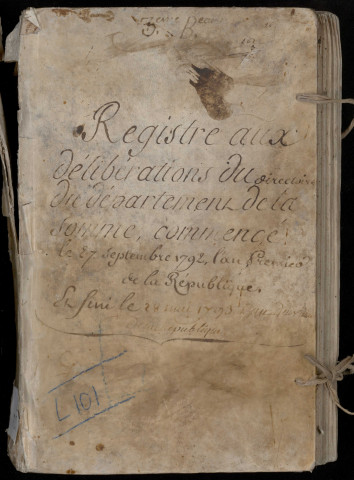 3. B.
Registre aux
délibérations du directoire
du département de la
Somme, commencé
le 27 septembre 1792, l'an Premier
de la République.
Et fini le 28 mai 1793
République
L 101